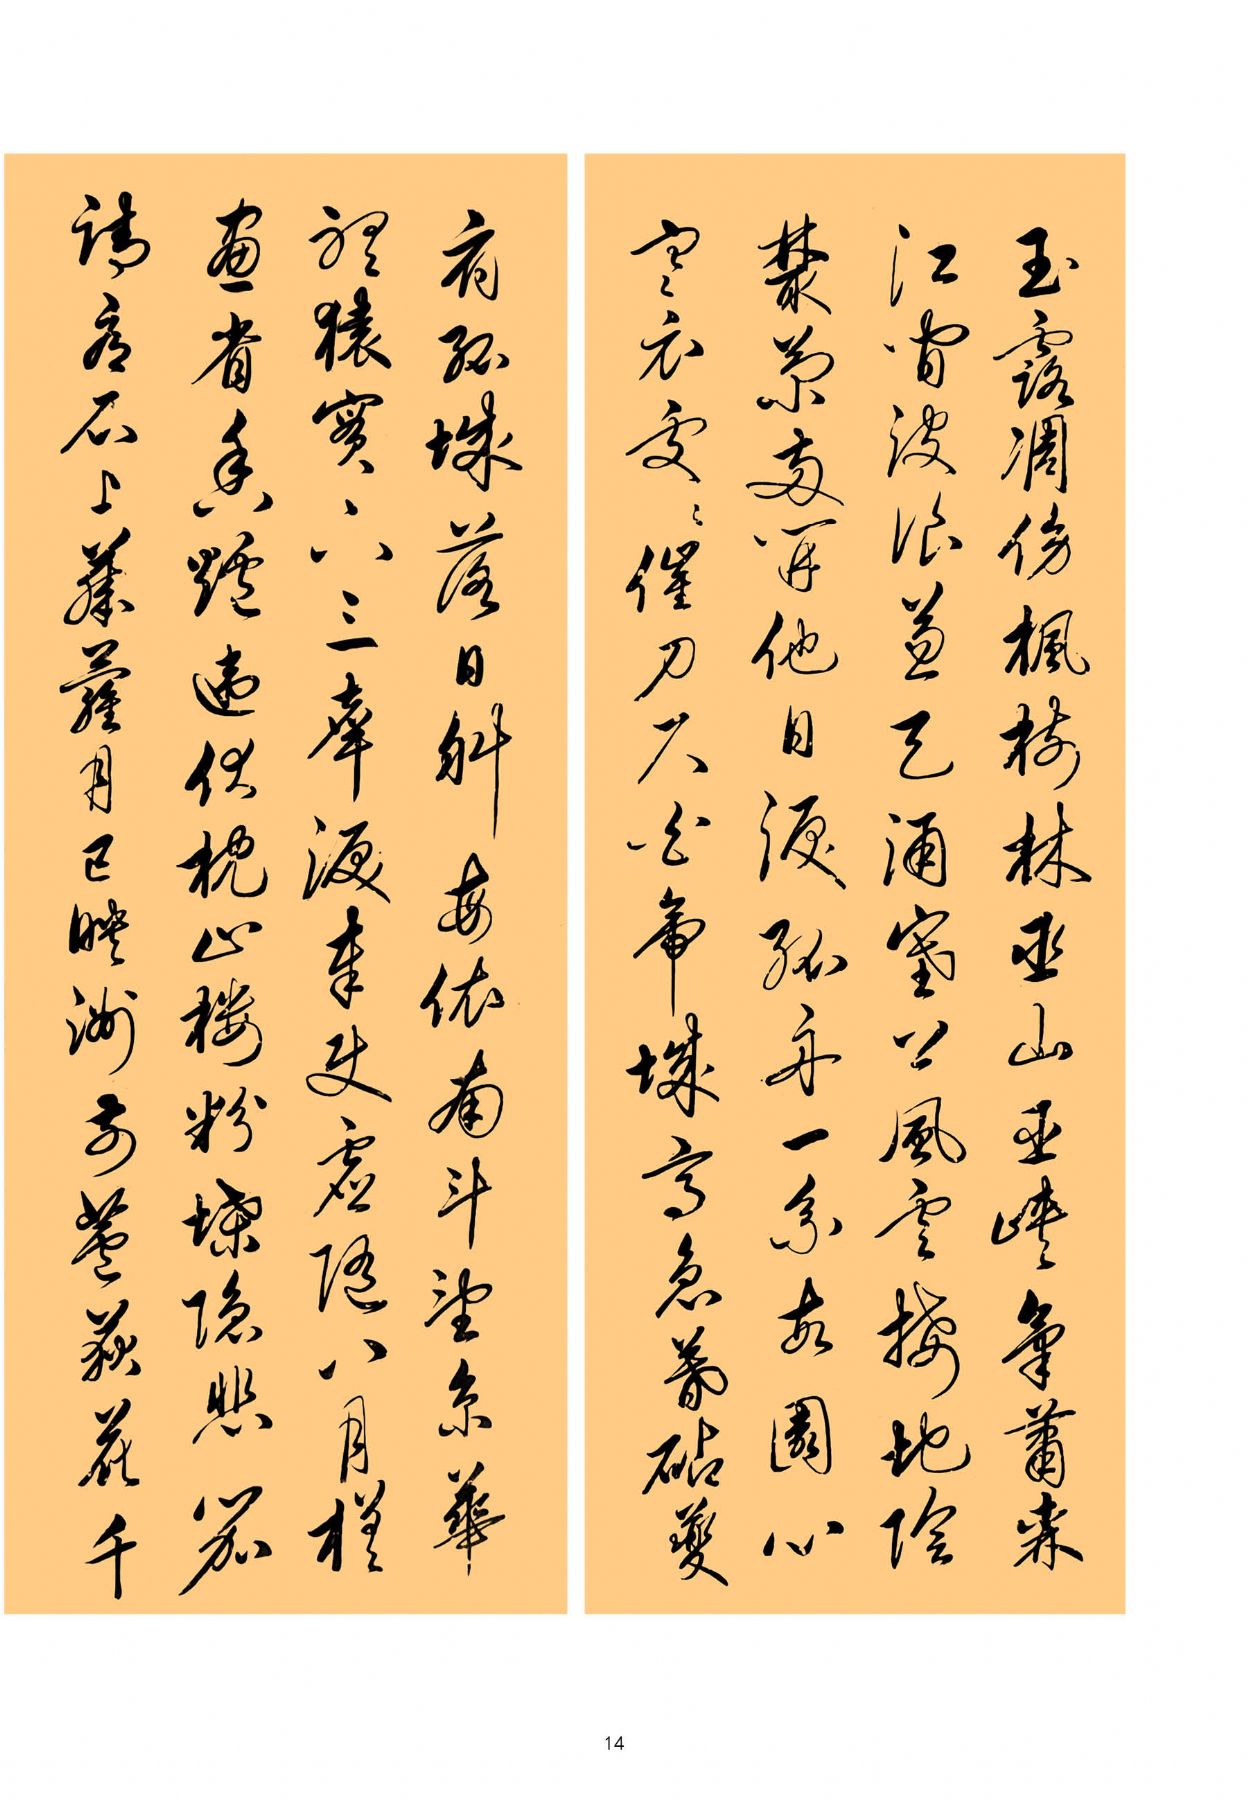 玉露凋傷楓樹林巫山巫峽氣蕭森
江間波浪兼天涌塞上風雲接地陰
叢菊兩開他日淚孤舟一系故園心
寒衣處〻催刀尺白帝城高急暮砧夔
府孤城落日斜每依南斗望京華
聽猿實下三聲淚奉使虛隨八月槎
畫省香爐違伏枕山樓粉堞隱悲笳
請看石上藤蘿月已映洲前蘆荻花千
14